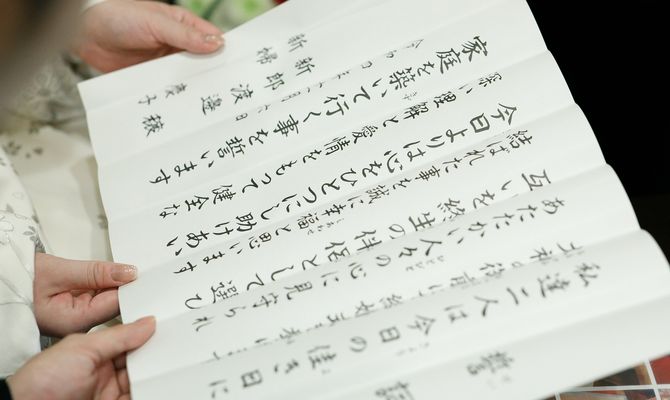 誓
私達二人は今日の佳き日に
あたたかい人々の心に見守られ
互いを終生の伴侶として選び
結ばれた事を誠に幸福と思います
今日よりは心をひとつにし助けあい
深い理解と愛情をもって健全な
家庭を築いて行く事を誓います
新郎 渡邊
新婦